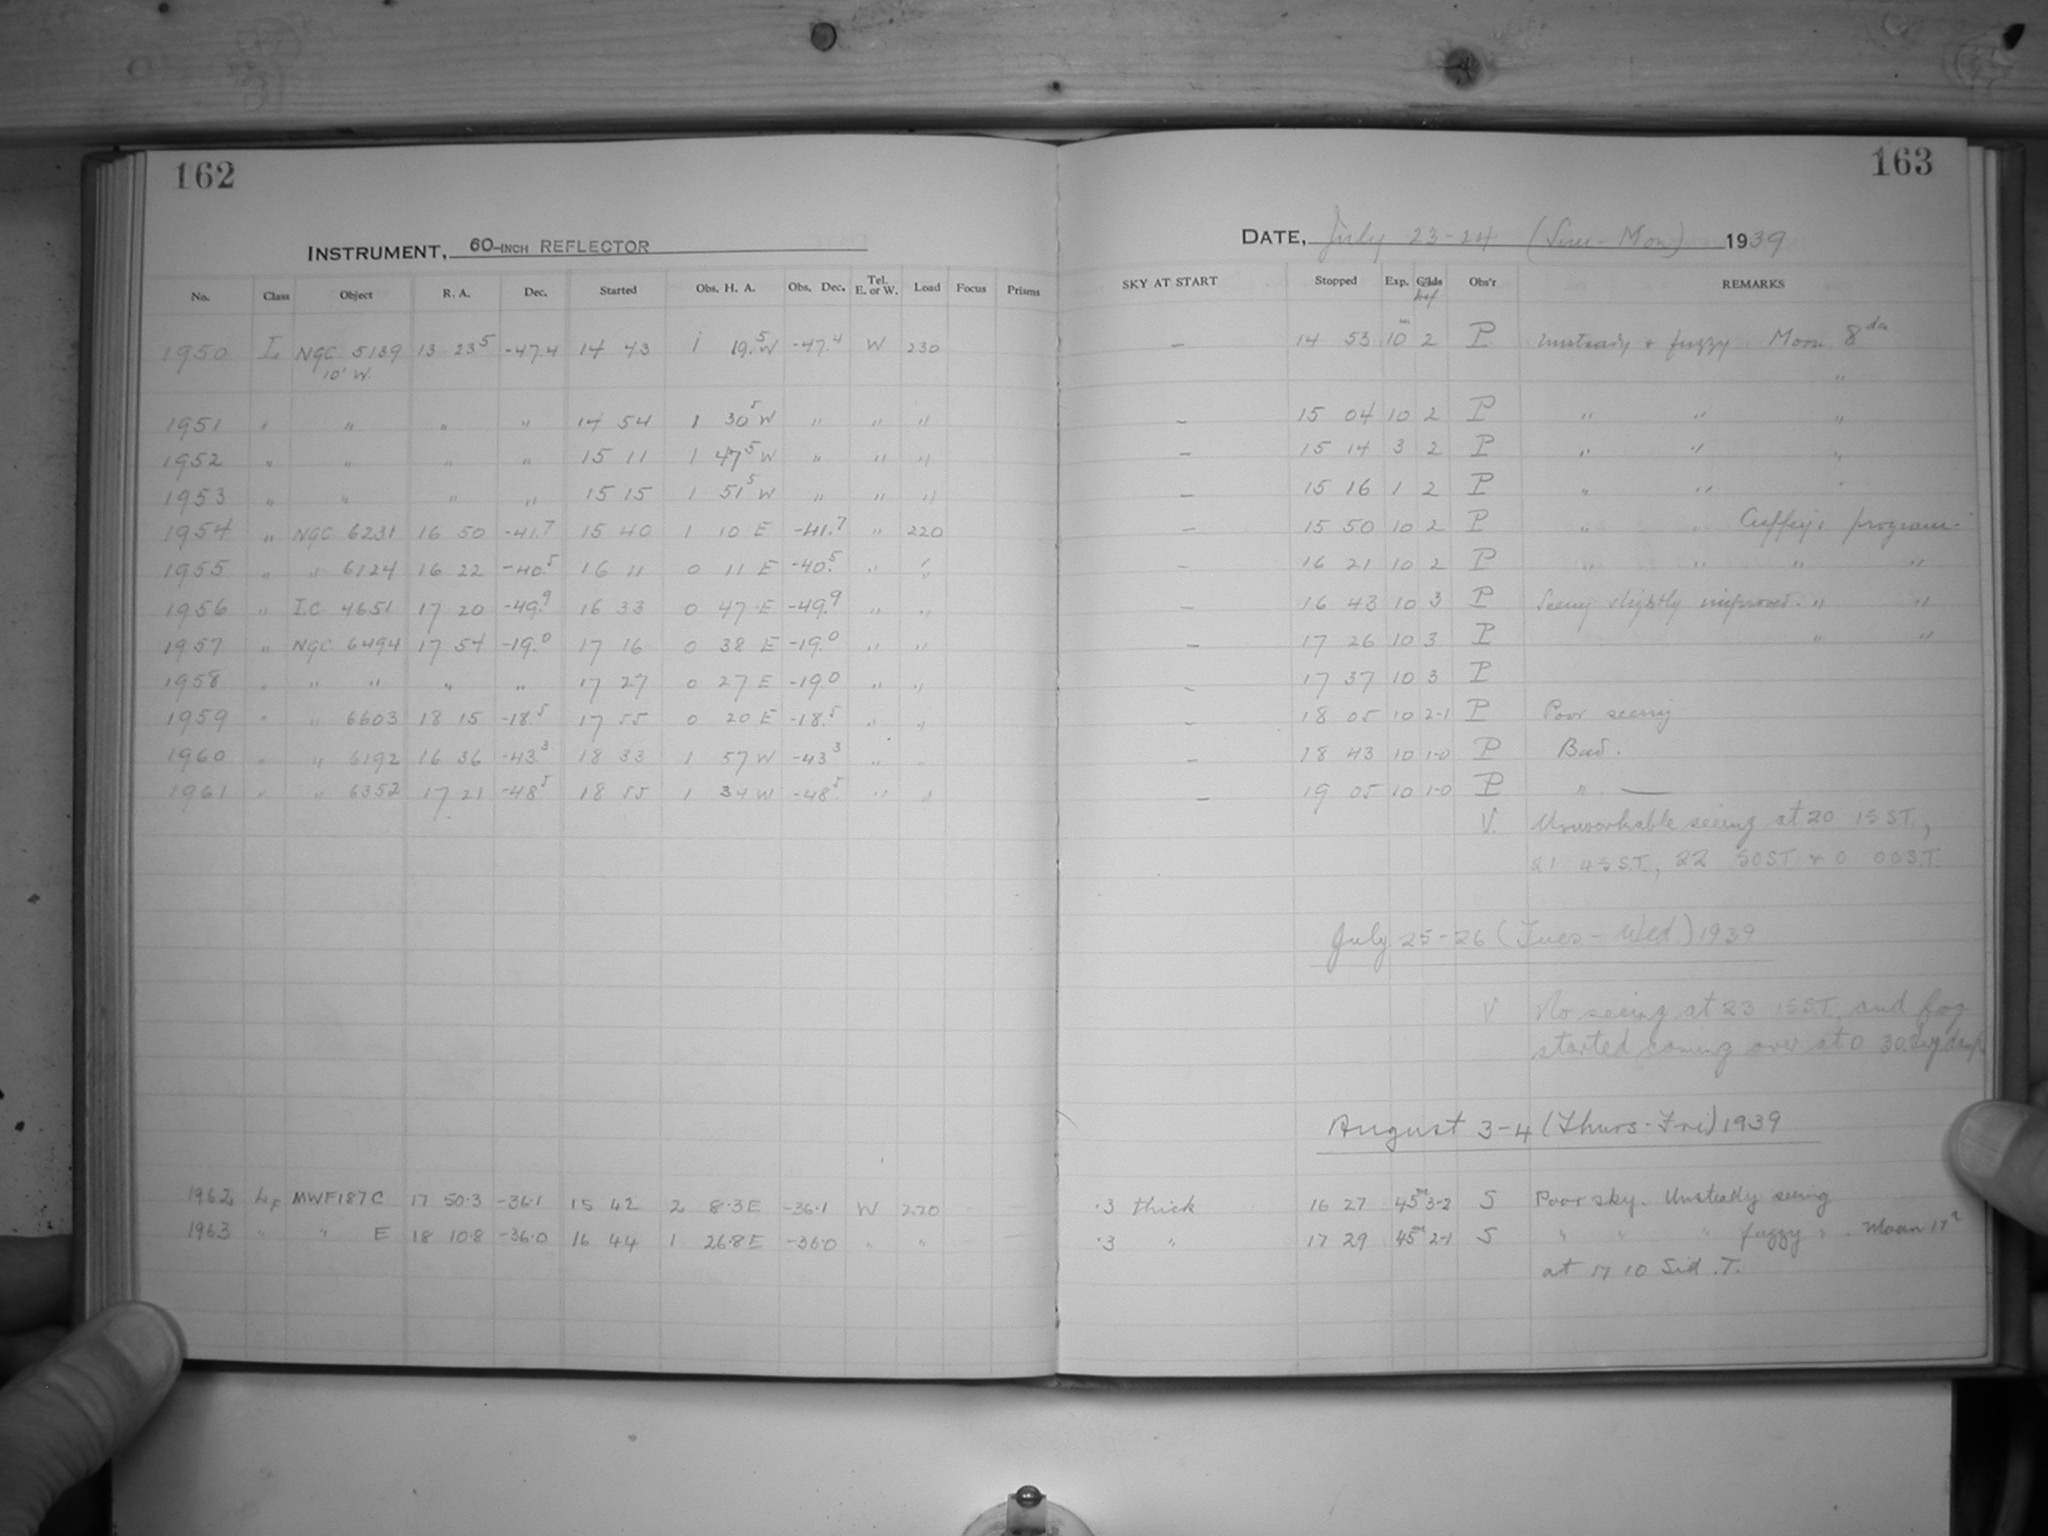 162
INSTRUMENT, 60-INCH REFLECTOR
No. Class Object R. A. Dec. Started Obs. H. A. Obs. Dec. Tel. E. or W. Load Focus Prisms
1950 L NGC 5139 13 23⁵ -47.4 14 43 1 19.⁵W -47.⁴ W 230
10' W.
1951 " " " " 14 54 1 30⁵W " " "
1952 " " " " 15 11 1 47⁵W " " "
1953 " " " " 15 15 1 51⁵W " " "
1954 " NGC 6231 16 50 -41.⁷ 15 40 1 10 E -41.⁷ " 220
1955 " " 6124 16 22 -40.⁵ 16 11 0 11 E -40.⁵ " "
1956 " I.C 4651 17 20 -49.⁹ 16 33 0 47 E -49.⁹ " "
1957 " NGC 6494 17 54 -19.⁰ 17 16 0 38 E -19.⁰ " "
1958 " " " " " 17 27 0 27 E -19⁰ " "
1959 " " 6603 18 15 -18.⁵ 17 55 0 20 E -18.⁵ " "
1960 " " 6192 16 36 -43³ 18 33 1 57 W -43³ " "
1961 " " 6352 17 21 -48⁵ 18 55 1 34 W -48⁵ " "
1962 L_F MWF187C 17 50.3 -36.1 15 42 2 8.3E -36.1 W 220
1963 " " E 18 10.8 -36.0 16 44 1 26.8E -36.0 " "
163
DATE, July 23-24 (Sun-Mon) 1939
SKY AT START Stopped Exp. Obs'r REMARKS
– 14 53 10ᵐ 2 P Unsteady & fuzzy Moon 8ᵈᵃ
"
– 15 04 10 2 P " " "
– 15 14 3 2 P " " "
– 15 16 1 2 P " " "
– 15 50 10 2 P " " Cuffey's program
– 16 21 10 2 P " " " "
– 16 43 10 3 P Seeing slightly improved. " "
– 17 26 10 3 P " "
– 17 37 10 3 P
– 18 05 10 2-1 P Poor seeing
– 18 43 10 1-0 P Bad.
– 19 05 10 1-0 P " —
V. Unworkable seeing at 20 15 S.T.,
21 45 S.T., 22 50 S.T. & 0 00 S.T.
July 25-26 (Tues-Wed.) 1939
V No seeing at 23 15 S.T. and fog
started coming over at 0 30.
August 3-4 (Thurs-Fri) 1939
.3 thick 16 27 45ᵐ 3-2 S Poor sky. Unsteady seeing
.3 " 17 29 45ᵐ 2-1 S " " " fuzzy " . Moon
at 17 10 Sid. T.